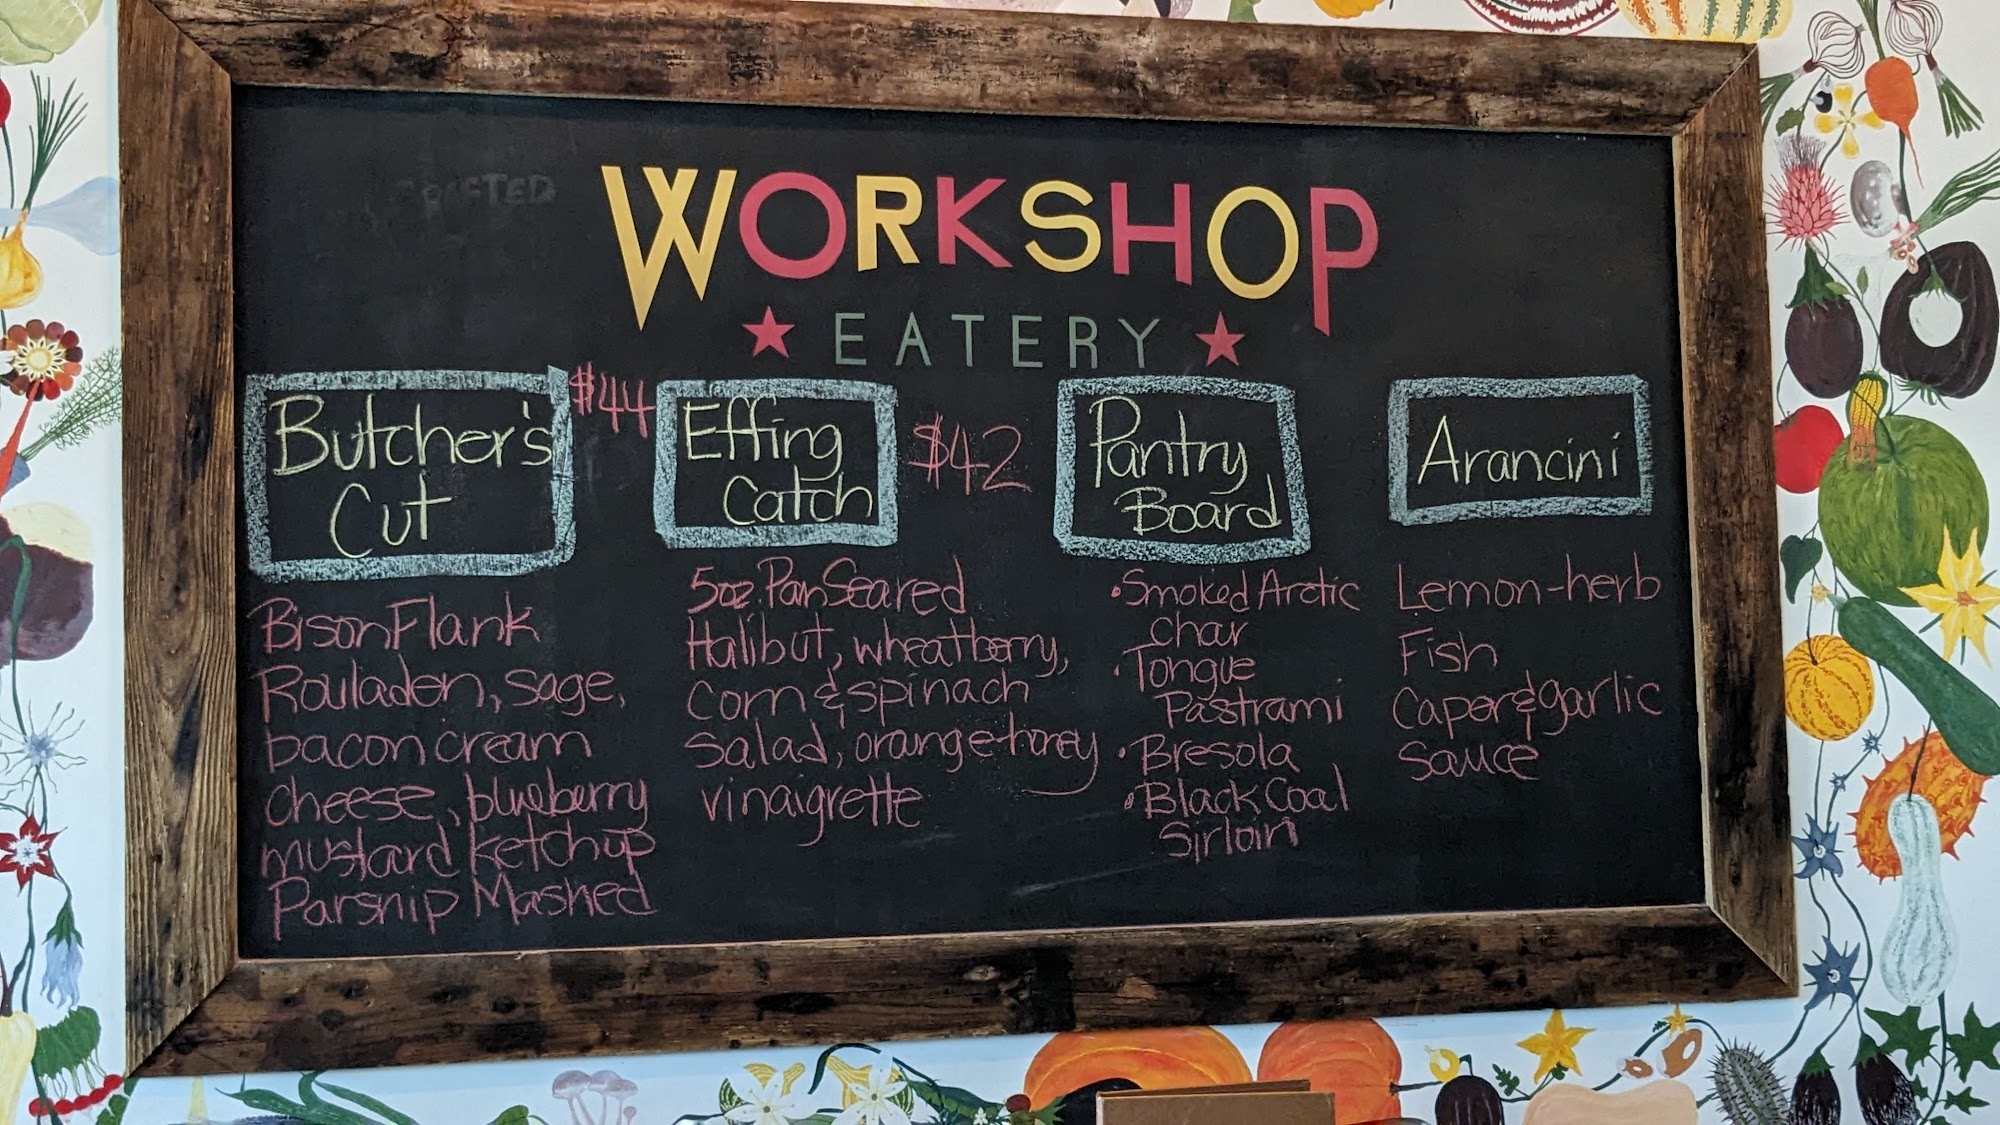 CRAFTED
WORKSHOP
★ EATERY ★
Butcher's
Cut
$44
Bison Flank
Rouladen, sage,
bacon cream
cheese, blueberry
mustard ketchup
Parsnip Mashed
Effing
Catch
$42
5oz. Pan Seared
Halibut, wheatberry,
Corn & spinach
Salad, orange-honey
vinaigrette
Pantry
Board
• Smoked Arctic
char
• Tongue
Pastrami
• Bresola
• Black Coal
Sirloin
Arancini
Lemon-herb
Fish
Caper & garlic
Sauce